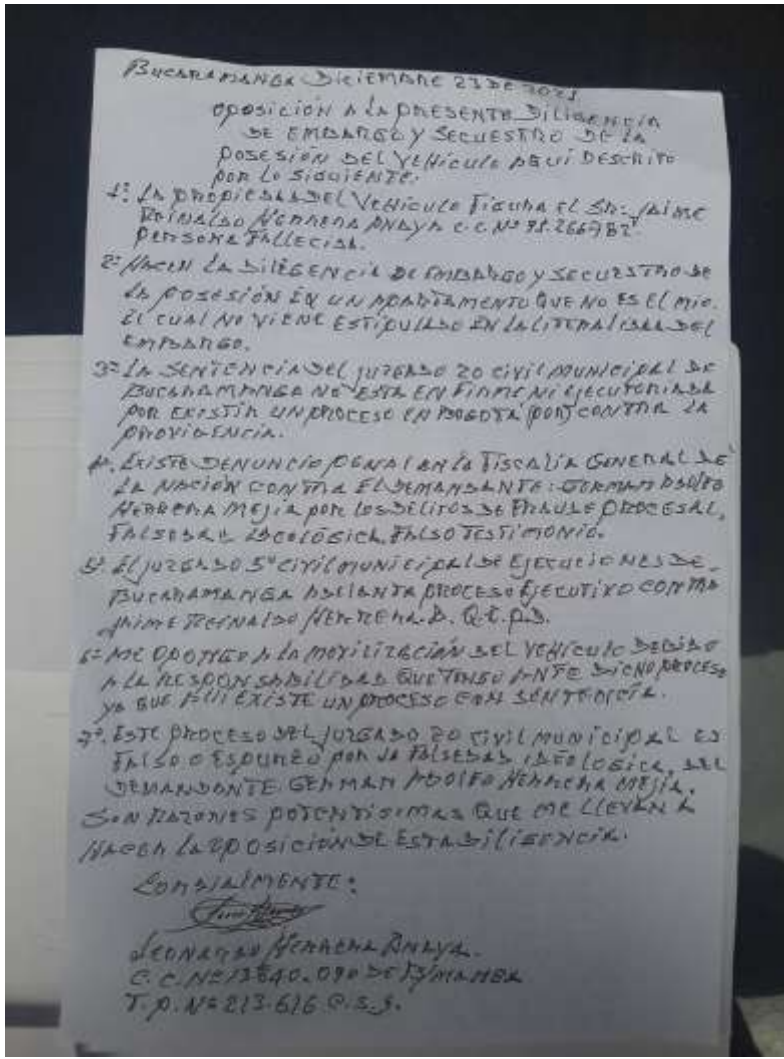 BUCARAMANGA DICIEMBRE 23 DE 2021
OPOSICIÓN A LA PRESENTE DILIGENCIA
DE EMBARGO Y SECUESTRO DE LA
POSESIÓN DEL VEHICULO AQUÍ DESCRITO
POR LO SIGUIENTE.
1º LA PROPIEDAD DEL VEHICULO FIGURA EL SR: JAIME
REINALDO HERRERA ANAYA C.C. Nº
PERSONA FALLECIDA.
2º HACEN LA DILIGENCIA DE EMBARGO Y SECUESTRO DE
LA POSESIÓN EN UN APARTAMENTO QUE NO ES EL MIO.
EL CUAL NO VIENE ESTIPULADO EN LA LITERALIDAD DEL
EMBARGO.
3º LA SENTENCIA DEL JUZGADO 20 CIVIL MUNICIPAL DE
BUCARAMANGA NO ESTA EN FIRME NI EJECUTORIADA
POR EXISTIR UN PROCESO EN BOGOTÁ CONTRA LA
PROVIDENCIA.
4º. EXISTE DENUNCIO PENAL AN LA FISCALÍA GENERAL DE
LA NACIÓN CONTRA EL DEMANDANTE: GERMAN ADOLFO
HERRERA MEJIA POR LOS DELITOS DE FRAUDE PROCESAL,
FALSEDAD IDEOLÓGICA, FALSO TESTIMONIO.
5º EL JUZGADO 5º CIVIL MUNICIPAL DE EJECUCIONES DE
BUCARAMANGA ADELANTA PROCESO EJECUTIVO CONTRA
JAIME REINALDO HERRERA A. Q.E.P.D.
6º ME OPONGO A LA MOVILIZACIÓN DEL VEHICULO DEBIDO
A LA RESPONSABILIDAD QUE TENGO ANTE DICHO PROCESO
YA QUE ALLI EXISTE UN PROCESO CON SENTENCIA.
7º. ESTE PROCESO DEL JUZGADO 20 CIVIL MUNICIPAL ES
FALSO O ESPUREO POR LA FALSEDAD IDEOLOGICA, DEL
DEMANDANTE GERMAN ADOLFO HERRERA MEJÍA.
SON RAZONES POTENTISIMAS QUE ME LLEVAN A
HACER LA OPOSICIÓN DE ESTA DILIGENCIA.
CORDIALMENTE:
LEONARDO HERRERA ANAYA.
C.C. Nº 13'840.090 DE B/MANGA
T.P. Nº 213.616 C.S.J.